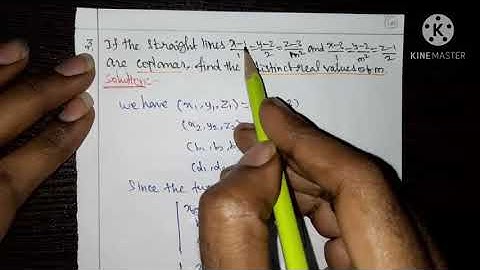 If the straight lines x-1/1 = y-2/2 = z-3/m² and x-3/1 = y-2/m² = z-1/2
are coplanar, find the distinct real values of m.
Solution:-
We have (x₁, y₁, z₁) =
(x₂, y₂, z₂)
(b₁, b₂, b
(d₁, d₂
Since the
KINEMASTER